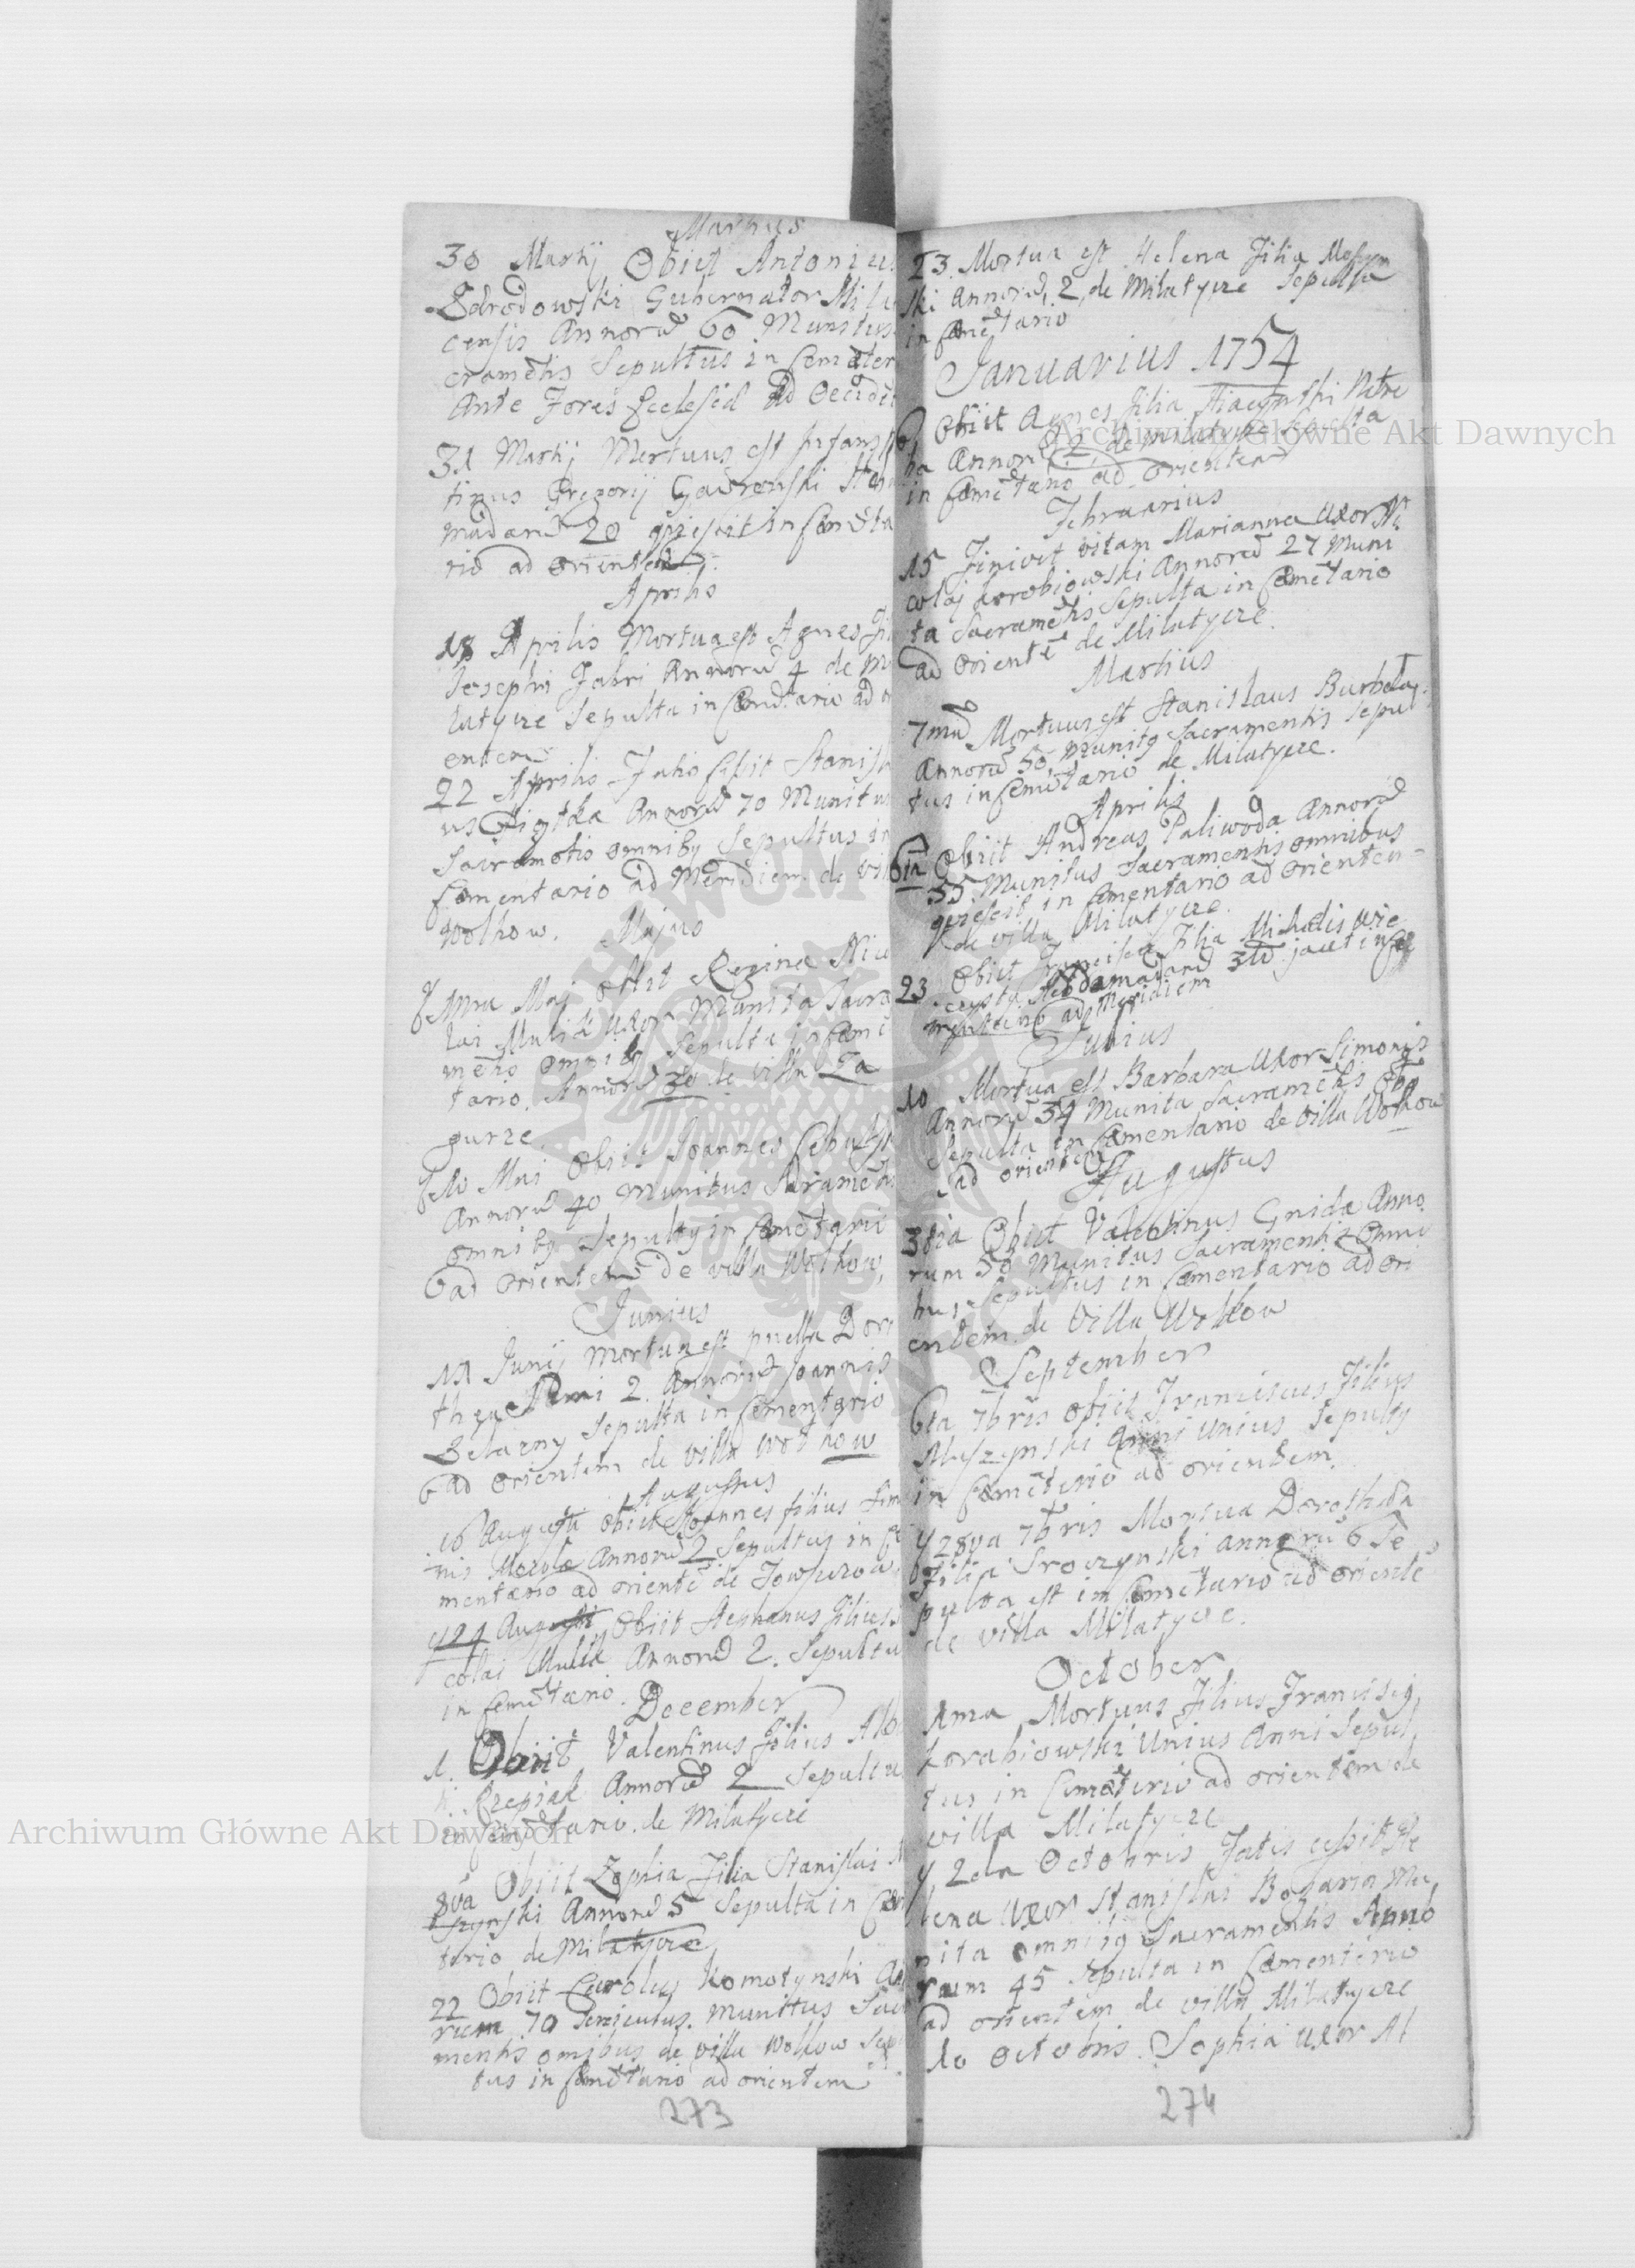 Martius
30 Martij Obiit Antonius
Zdrodowski Gubernator Mila
censis Annorũ 60 Munitus
cramẽtis Sepultus in Cemeter
Ante Fores Ecclesiæ ad Occide
31 Martij Mortuus est Infans
tinus Gregorij Gawronski Heb
madarũ 20 quiescit in Cemẽta
rio ad orientem
Aprilis
18 Aprilis Mortua est Agnes Fi
Josephi Fabri Annorũ 4 de Mi
latycze Sepulta in Cemẽtario ad ori
entem
22 Aprilis Fatis cessit Stanisla
us Annorũ 70 Munitus
Sacramẽtis omniby Sepultus in
Cementario ad Meridiem de vil
Wolkow.
Majus
Maj obiit Regina Nico
lai Mulik Uxor Munita Sacra
mẽtis omniby Sepulta in Cemẽ
tario. Annorũ 30 de villa Za
gurze
Mai Obiit Joannes
Annorũ 40 Munitus Sacramẽtis
omniby Sepulty in Cemẽtario
ad Orientem de villa Wolkow,
Junius
11 Junij Mortua est puella Doro
thea Anni 2. Annorũ Joannis
Zelazny Sepulta in Cementario
ad Orientem de villa Wolkow
Augustus
16 Augusti Obiit Joannes filius Simo
nis Annorũ 2 Sepultus in Ce
mentario ad orientẽ de
y 24 Augusti Obiit Stephanus Filius
colai Mulik Annorũ 2. Sepultu
in Cemẽtario.
December
1. Obiit Valentinus Filius Alb
Annorũ 2 Sepultu
in Cemẽtario. de Milatycze
8va Obiit Zophia Filia Stanislai
szynski Annorũ 5 Sepulta in Cem
terio de Milatycze
22 Obiit Carolus Komotynski An
rum 70 Munitus Sacra
mentis omibus de villa Wolkow Sepul
tus in Cemẽtario ad orientem
273
23. Mortua est Helena Filia Moszyn
ski Annorũ 2, de Milatycze Sepulta
in Cemẽtario
Januarius 1754
Obiit Agnes Filia Hiacynthi Petre
ha Annorũ 2, de Milatycze Sepulta
in Cemẽtario ad orientem
Februarius
15 Finivit vitam Marianna Uxor Ni
colaj Korobiowski Annorũ 27 Muni
ta Sacramẽtis Sepulta in Cemẽtario
ad Orientẽ de Milatycze.
Martius
7mã Mortuus est Stanislaus
Annorũ 50, munity Sacramentis Sepul
tus in Cemẽtario de Milatycze.
Aprilis
6ta Obiit Andreas Paliwoda Annorũ
55 Munitus Sacramentis omnibus
quiescit in Cementario ad Orientem
de villa Milatycze.
23 Obiit Francisca Filia Michaelis
Hebdamadarũ 3iũ jacet in Ce
mentario ad Meridiem
Julius
10 Mortua est Barbara Uxor Simonis
Annorũ 34 Munita Sacramẽtis
Sepulta in Cementario de Villa Wolkow
ad orientem
Augustus
30ta Obiit Valentinus Gnida Anno
rum 50 Munitus Sacramentis Omni
bus, Sepultus in Cementario ad ori
entem de Villa Wolkow
September
6ta 7bris obiit Franciscus Filius
Muszynski Anni Unius Sepulty
in Cemẽterio ad orientem.
y 28va 7bris Mortua Dorothea
Filia Sroczynski annorũ 6 Se
pulta est in Cemẽtario ad orientẽ
de villa Milatycze.
October
1ma Mortuus Filius Francisci
Korabiowski Unius Anni Sepul
tus in Cemẽterio ad orientem de
villa Milatycze
y 2da Octobris Fatis cessit He
lena Uxor Stanislai Mu
nita omniby Sacramentis Anno
rum 45 Sepulta in Cæmenterio
ad orientem de villa Milatycze
10 Octobris Sophia Uxor Al
274
Archiwum Główne Akt Dawnych
Archiwum Główne Akt Dawnych